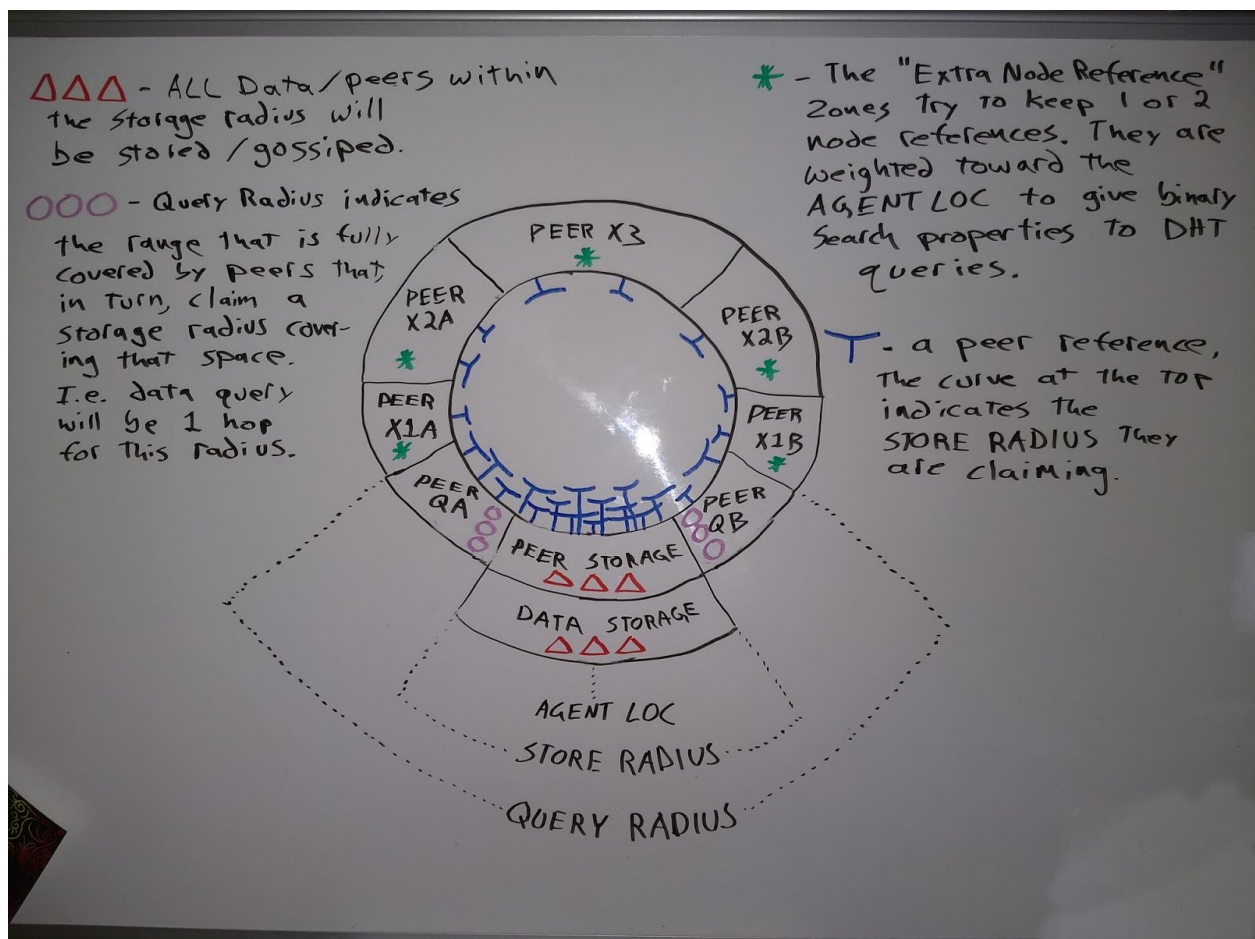 - ALL Data/peers within
the storage radius will
be stored/gossiped.
- Query Radius indicates
the range that is fully
covered by peers that,
in turn, claim a
storage radius cover-
ing that space.
I.e. data query
will be 1 hop
for this radius.
- The "Extra Node Reference"
Zones try to keep 1 or 2
node references. They are
weighted toward the
AGENT LOC to give binary
search properties to DHT
queries.
- a peer reference,
The curve at the top
indicates the
STORE RADIUS They
are claiming.
PEER X3
PEER
X2A
PEER
X2B
PEER
X1A
PEER
X1B
PEER
QA
PEER
QB
PEER STORAGE
DATA STORAGE
AGENT LOC
STORE RADIUS
QUERY RADIUS